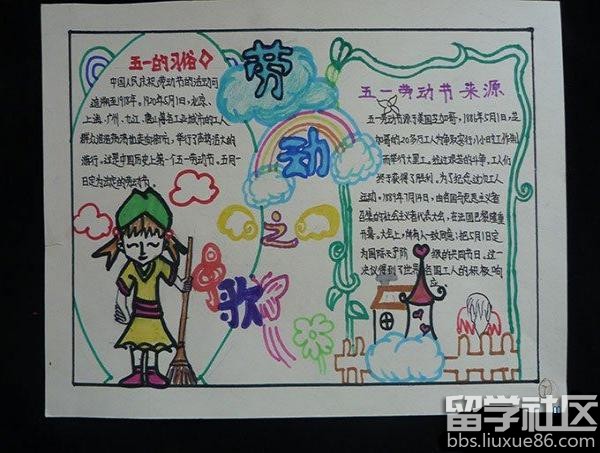 五一的习俗
中国人民庆祝劳动节的活动可
追溯至1918年。1920年5月1日,北京、
上海、广州、九江、唐山等各工业城市的工人
群众浩浩荡荡地走向街市,举行了声势浩大的
游行。这是中国历史上第一个五一劳动节。五月一
日定为法定的劳动节。
劳
动
之
歌
五一劳动节来源
五一劳动节源于美国芝加哥,1886年5月1日,芝
加哥的20多万工人为争取实行八小时工作制
而举行大罢工。经过艰苦的斗争,工人们
终于获得了胜利。为了纪念这次工人
运动,1889年7月14日,由各国马克思主义者
召集的社会主义者代表大会,在法国巴黎隆重
开幕。大会上,所有人一致同意:把5月1日定
为国际无产阶 级的共同节日。这一
决议得到了世界各国工人的积极响
应。
留学社区
bbs.liuxue86.com